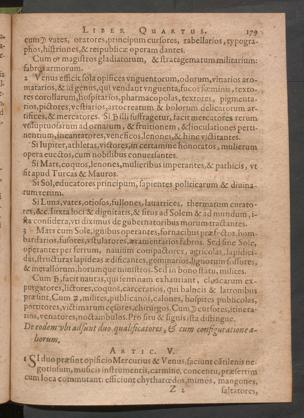 LIBER QUARTUS. 179
cum ☿ vates, oratores, principum cursores, tabellarios, typogra-
phos, histriones, & reipublicæ operam dantes.
Cum ♂ magistros gladiatorum, & stratagematum militarium:
fabros armorum.
2 Venus efficit sola opifices vnguentorum, odorum, vinarios aro-
matarios, & id genus, qui vendant vnguenta, fucos fœminis, texto-
res corollarum, hospitarios, pharmacopolas, textores, pigmenta-
rios, pictores, vestiarios, artocrearum & bolorum delicatorum ar-
tifices, & mercatores. Si ♄ illi suffragetur, facit mercatores rerum
voluptuosarum ad ornatum, & fruitionem, & pertinentium, incantatores, veneficos, lenones, & hinc victitantes.
Si Iupiter, athletas, victores, in certamine honoratos, mulierum
opera euectos, cum nobilibus conuersantes.
Si Mars, coquos, lenones, mulieribus imperantes, & pathicis, vt
fit apud Turcas & Mauros.
Si Sol, educatores principum, sapientes politicarum & diuina-
rum rerum.
Si Luna, vates, otiosos, fullones, lauatrices, thermarum curato-
res, &c. Iuxta loci & dignitatis, & sinus ad Solem & ad mundum, i-
ta considera, vt diximus de gubernatoribus morum tractantes.
3 Mars cum Sole, ignibus operantes, fornacibus præfectos, bom-
bardarios, fusores, ærarios fabros. Sed sine Sole,
operantes per ferrum, nauium compactores, agricolas, lapidici-
das, structuras lapideas ædificantes, lignorum sculptores,
& metallorum, horumque ministros. Sed in bono statu, milites.
Cum ♄, facit nautas, qui sentinam exhauriant, cloacarum ex-
purgatores, lictores, coquos, carcerarios, qui balneis & latrinibus
præsunt. Cum milites, publicanos, calones, hospites publicos,
portitores, victimarum chirurgos. Cum ☿ cursores, itinera-
rios, venatores, noctambulos. Pro situ & signis ista distingue.
De eodem vbi adsunt duo qualificatores, & cum configuratione a-
liorum.
ARTIC. V.
1 SI duo præsunt opificio Mercurius & Venus, faciunt cantilenis ne-
gotiosum, musicis instrumentis, carmine, concentu, præsertim
cum loca commutant: efficiunt cytharœdos, mimos, mangones,
Z 2 saltatores,